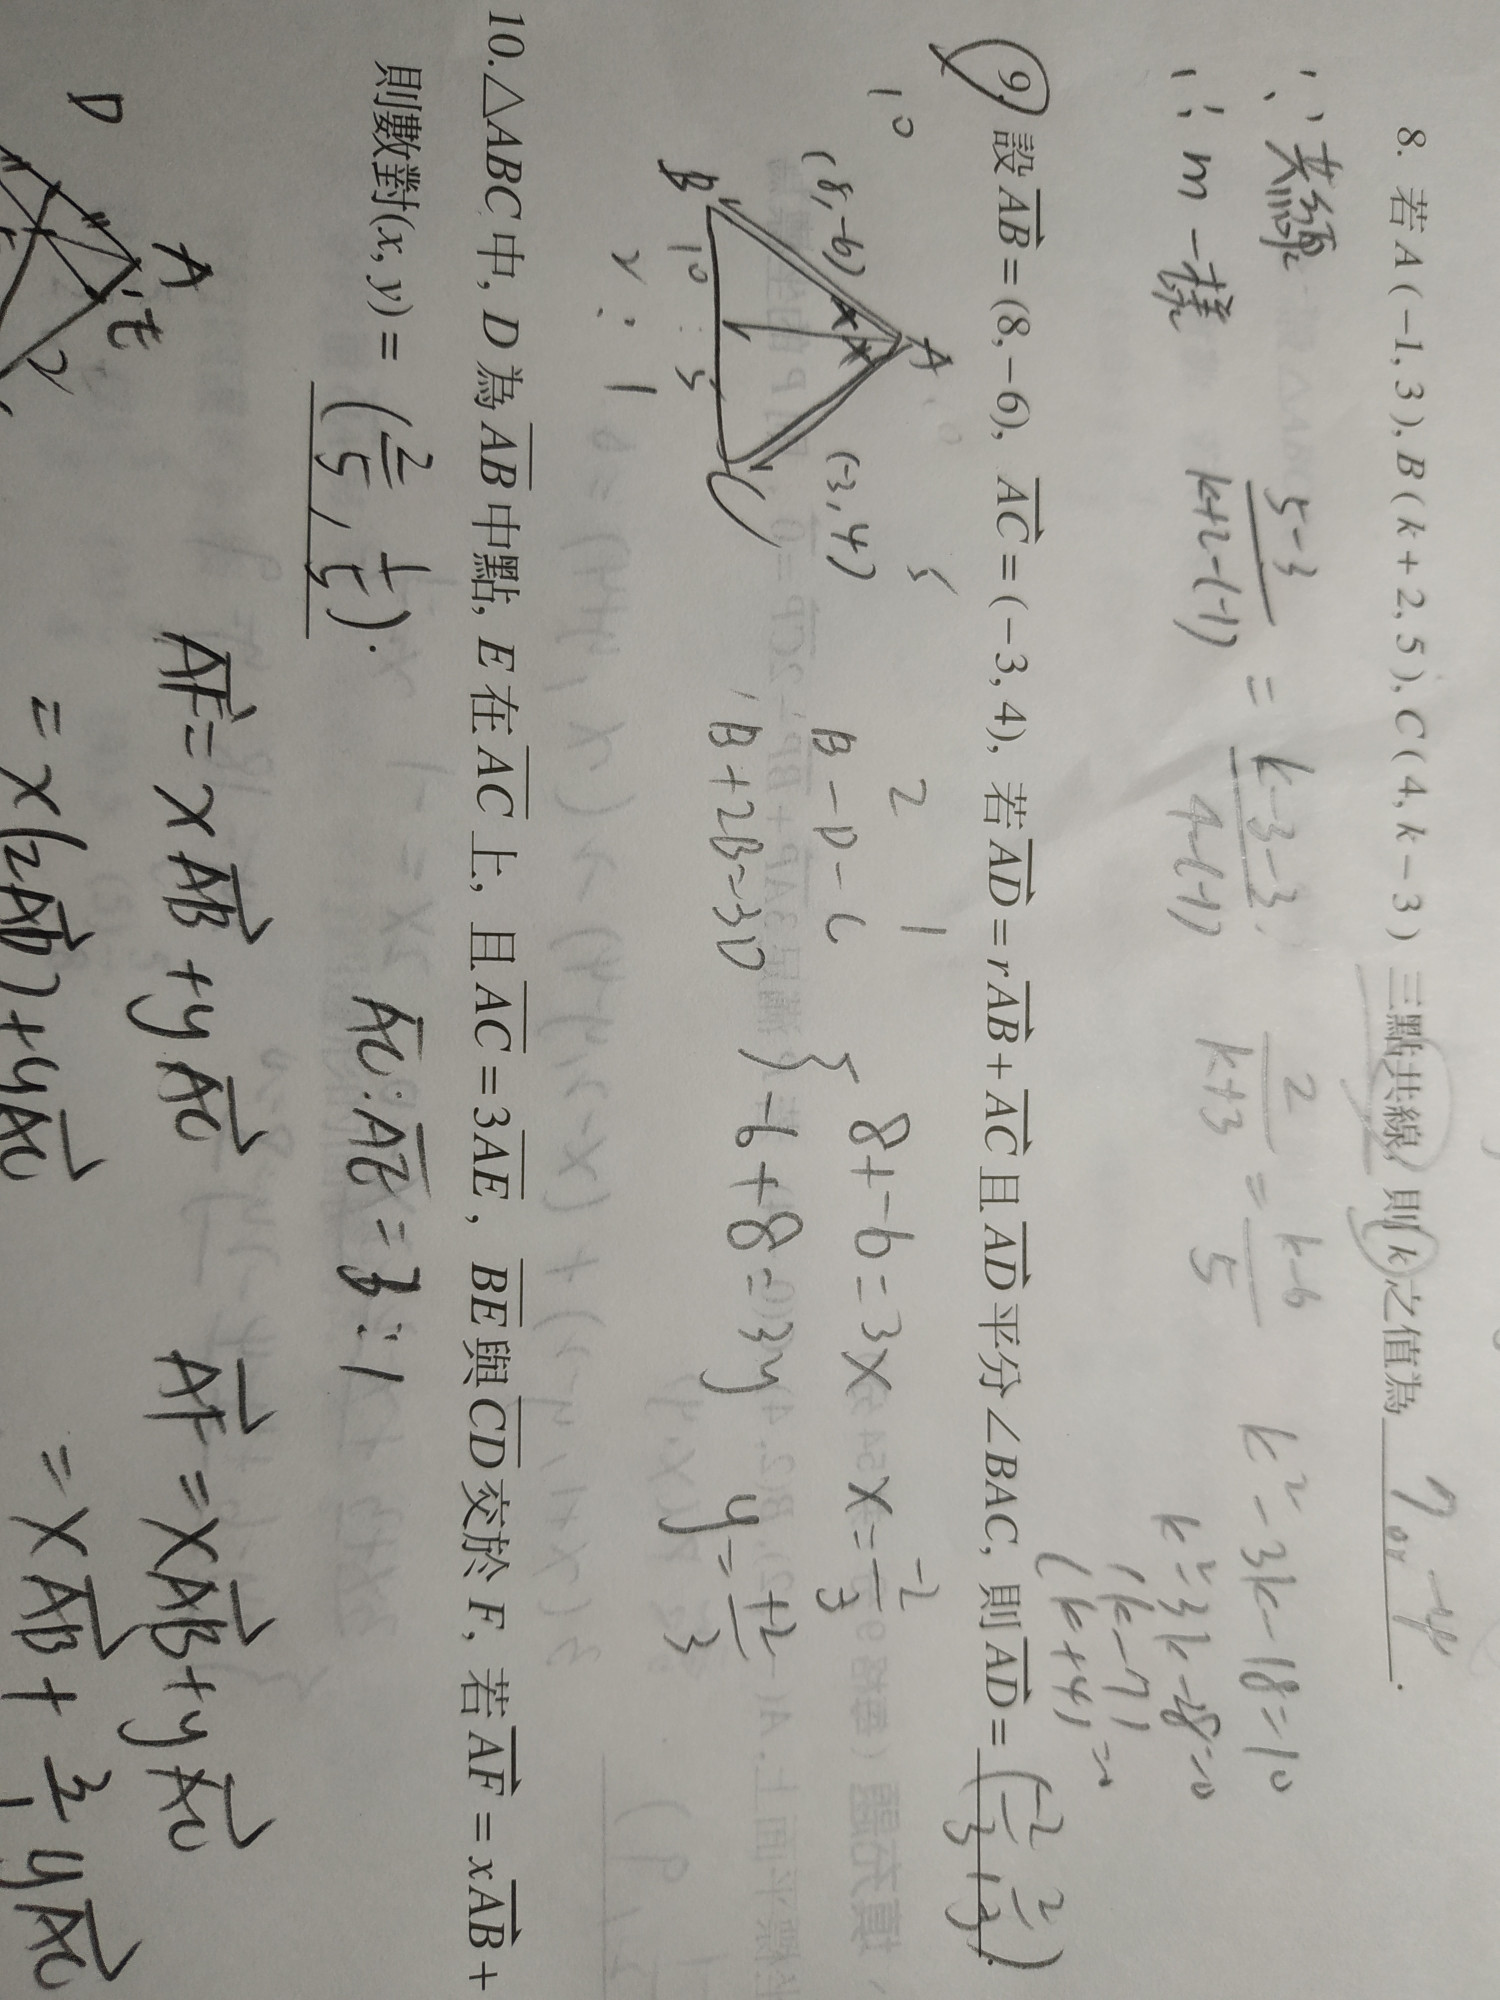 8. 若A(−1,3),B(k+2,5),C(4,k−3)三點共線,則k之值為 7 or −4 .
∵共線
∴m一樣
5−3/k+2−(−1) = k−3−3/4−(−1)
2/k+3 = k−6/5
k²−3k−18=10
k²−3k−28=0
(k−7)
(k+4)=0
9. 設AB=(8,−6), AC=(−3,4), 若AD=rAB+AC且AD平分∠BAC, 則AD=(−2/3, 2/3).
10
(8,−6)
A
(−3,4)
5
B
10 : 5
C
2 : 1
2 1
B−D−C
B+2B=3D
{ 8+−6=3x
−6+8=3y
x=−2/3
y=+2/3
10.△ABC中, D為AB中點, E在AC上, 且AC=3AE, BE與CD交於F, 若AF=xAB+
則數對(x,y)= (2/5, 1/5).
AC:AE=3:1
D
A
E
2
AF=xAB+yAC
=x(2AD)+yAC
AF=xAB+yAC